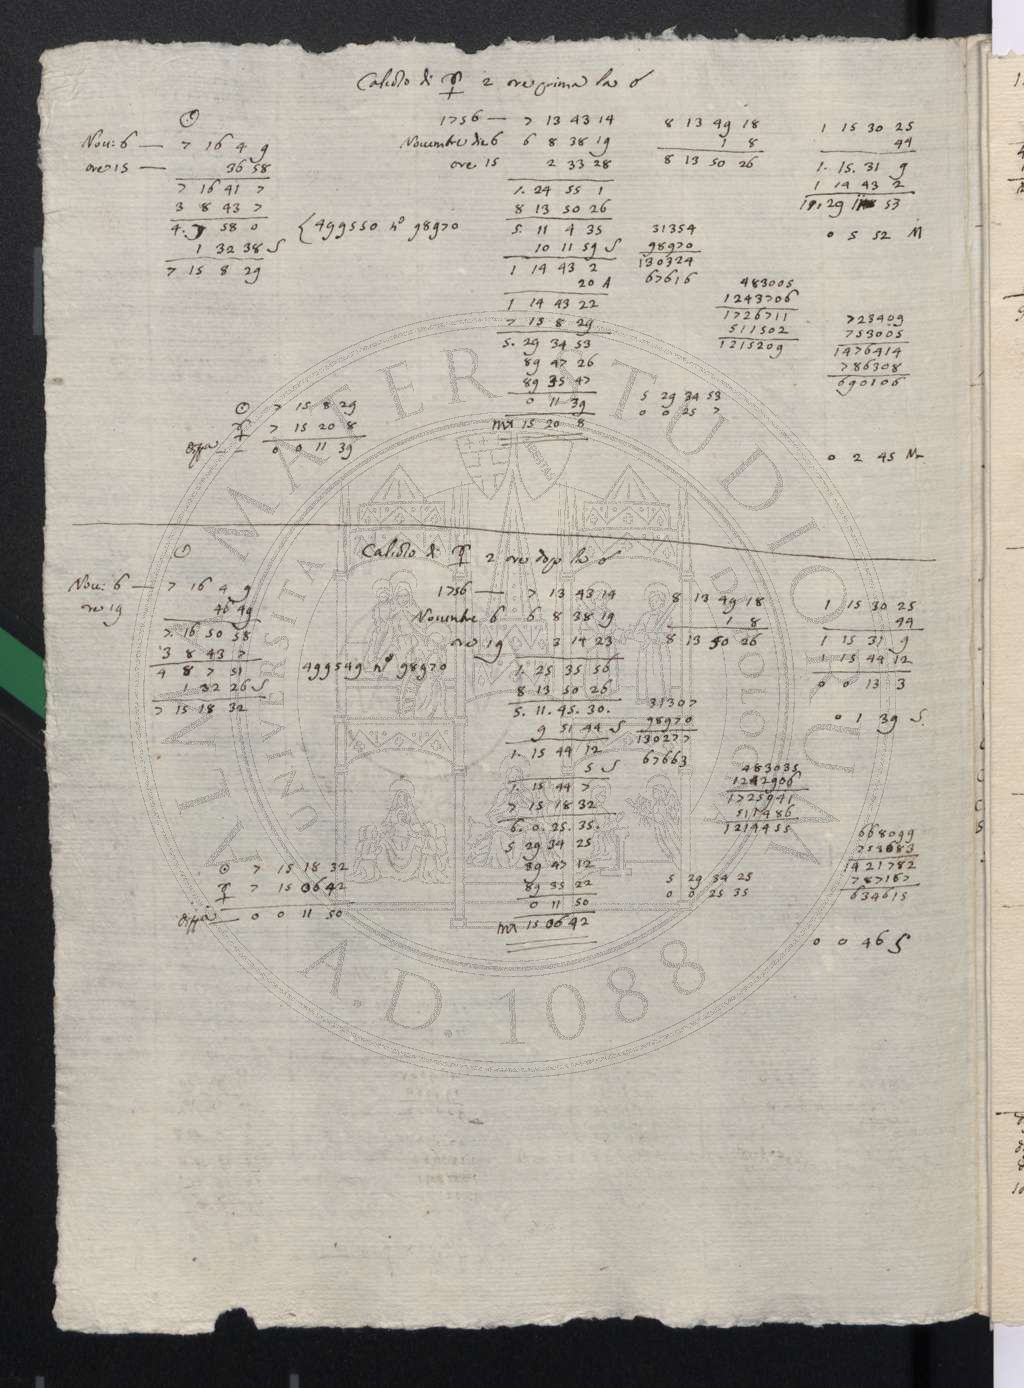 Calcolo di ☿ 2 ore prima la ☌
☉
Nou: 6 — 7 16 4 9
ore 15 — 36 58
7 16 41 7
3 8 43 7
4. 7 58 0
1 32 38 S
7 15 8 29
{499550 no 98970
1756 — 7 13 43 14
Nouembre die 6 6 8 38 19
ore 15 2 33 28
1. 24 55 1
8 13 50 26
5. 11 4 35
10 11 59 S
1 14 43 2
20 A
1 14 43 22
7 15 8 29
5. 29 34 53
89 47 26
89 35 47
0 11 39
15 20 8
8 13 49 18
1 8
8 13 50 26
31354
98970
130324
67616
483005
1243706
1726711
511502
1215209
5 29 34 53
0 0 25 7
1 15 30 25
44
1. 15. 31 9
1 14 43 2
11. 29 53
0 5 52 M
723409
753005
1476414
786308
690106
0 2 45
☉ 7 15 8 29
☿ 7 15 20 8
Diffa — 0 0 11 39
Calcolo di ☿ 2 ore dopo la ☌
☉
Nou: 6 — 7 16 4 9
ore 19 46 49
7. 16 50 58
3 8 43 7
4 8 7 51
1 32 26 S
7 15 18 32
499549 no 98970
1756 — 7 13 43 14
Nouembre 6 6 8 38 19
ore 19 3 14 23
1. 25 35 56
8 13 50 26
5. 11. 45. 30.
9 51 44 S
1. 15 44 12
5 S
1. 15 44 7
7 15 18 32
6. 0. 25. 35.
5 29 34 25
89 47 12
89 35 22
0 11 50
15 06 42
8 13 49 18
1 8
8 13 50 26
31307
98970
130277
67663
483035
1242906
1725941
511486
1214455
5 29 34 25
0 0 25 35
1 15 30 25
44
1 15 31 9
1 15 44 12
0 0 13 3
0 1 39 S.
668099
753683
1421782
787167
634615
0 0 46 S
☉ 7 15 18 32
☿ 7 15 06 42
Diffa — 0 0 11 50
ALMA MATER STUDIORUM
UNIVERSITÀ DI BOLOGNA
A.D. 1088